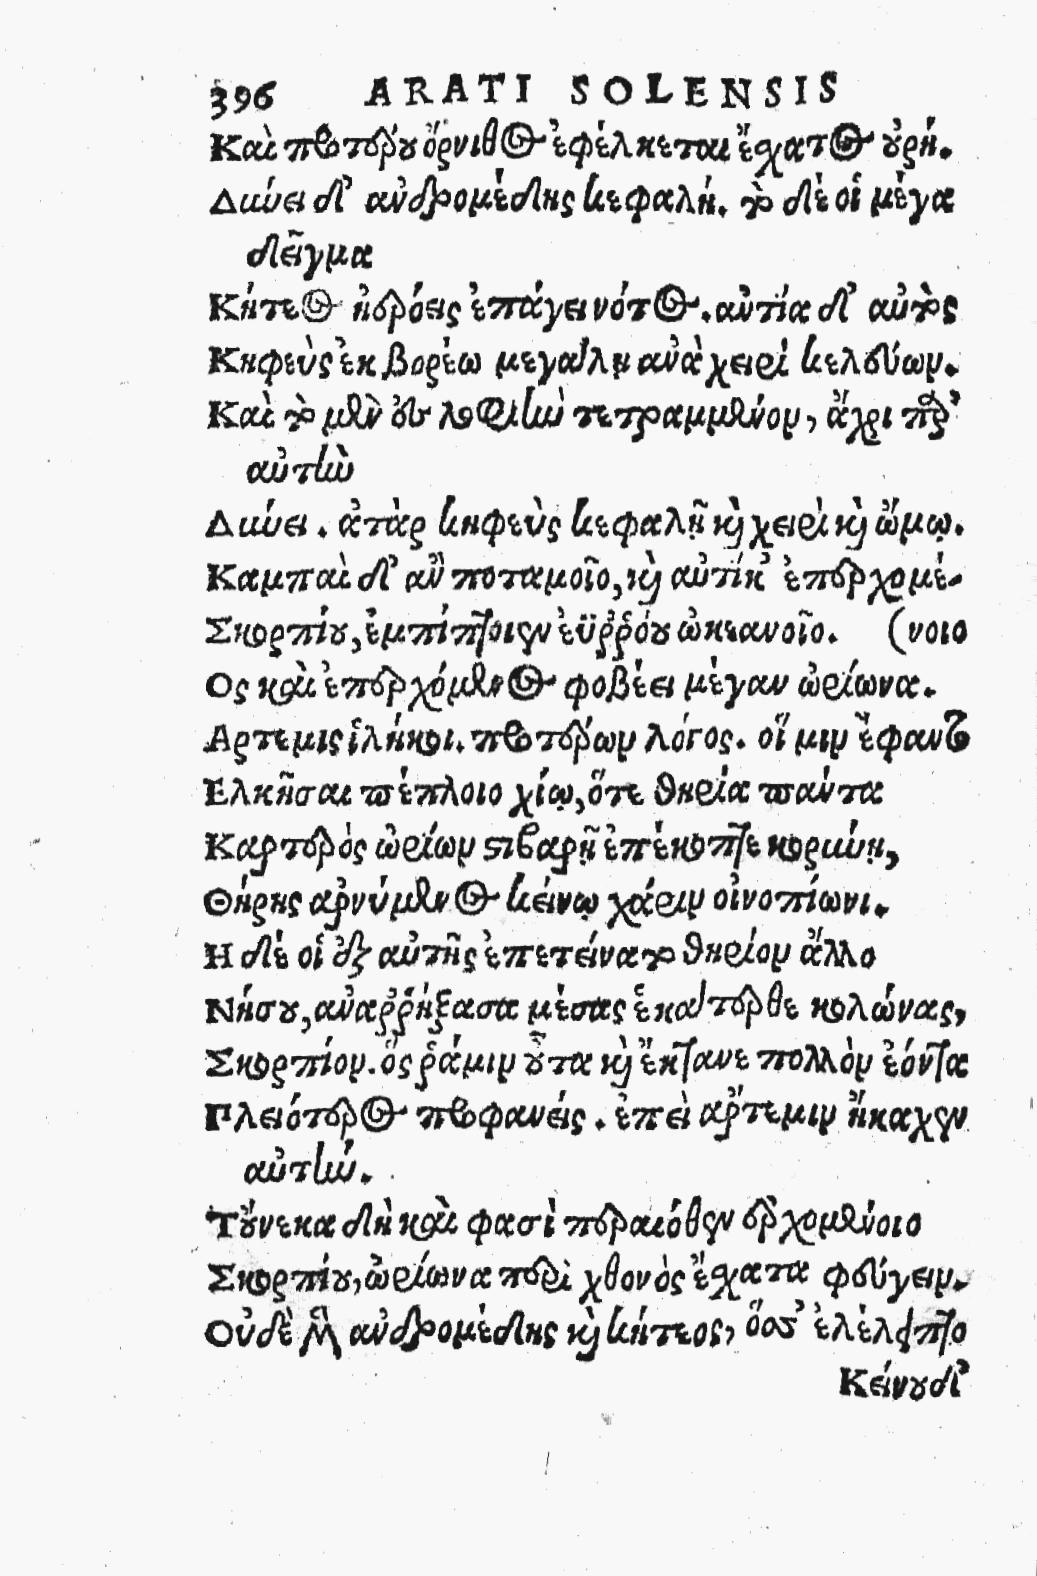 396 ARATI SOLENSIS
Καὶ προτέρου ὄρνιθος ἐφέλκεται ἔσχατος οὐρή.
Δύνει δ' ἀνδρομέδης κεφαλή. τὸ δέ οἱ μέγα
δεῖγμα
Κήτεος ἠερόεις ἐπάγει νότος. αὐτία δ' αὐτὸς
Κηφεὺς ἐκ βορέω μεγάλῃ ἀνὰ χειρὶ κελεύων.
Καὶ τὸ μὲν ἐς λοφιὴν τετραμμένον, ἄχρι παρ'
αὐτὴν
Δύνει. ἀτὰρ κηφεὺς κεφαλῇ καὶ χειρὶ καὶ ὤμῳ.
Καμπαὶ δ' ἂν ποταμοῖο, καὶ αὐτίκ' ἐπερχομέ-
Σκορπίου, ἐμπίπτοιεν ἐϋῤῥόου ὠκεανοῖο. (νοιο
Ος καὶ ἐπερχόμενος φοβέει μέγαν ὠρίωνα.
Αρτεμις ἱλήκοι. προτέρων λόγος. οἵ μιν ἔφαντο
Ελκῆσαι πέπλοιο χίῳ, ὅτε θηρία πάντα
Καρτερὸς ὠρίων στιβαρῇ ἐπέκοπτε κορύνῃ,
Θήρης ἀρνύμενος κείνῳ χάριν οἰνοπίωνι.
Η δέ οἱ ἐξ αὐτῆς ἐπετείνατο θηρίον ἄλλο
Νήσου, ἀναῤῥήξασα μέσας ἑκάτερθε κολώνας,
Σκορπίον. ὅς ῥά μιν οὖτα καὶ ἔκτανε πολλὸν ἐόντα
Πλειότερος προφανείς. ἐπεὶ ἄρτεμιν ἤκαχεν
αὐτήν.
Τοὔνεκα δὴ καὶ φασὶ περαιόθεν ἐρχομένοιο
Σκορπίου, ὠρίωνα περὶ χθονὸς ἔσχατα φεύγειν.
Οὐδὲ μὴν ἀνδρομέδης καὶ κήτεος, ὅσσ' ἐλέλειπτο
Κείνου δ'